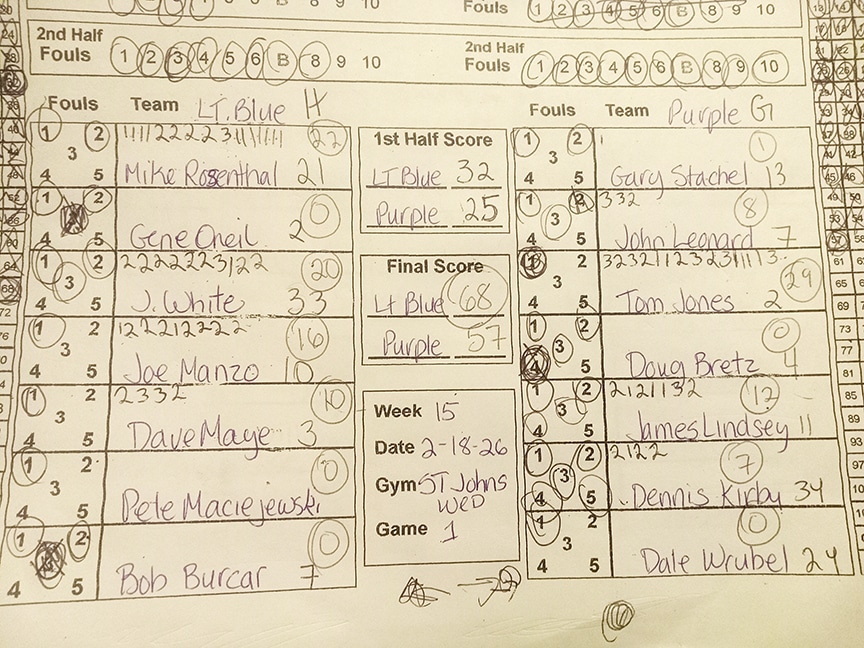 Fouls 1 2 3 4 5 6 B 8 9 10
2nd Half
Fouls 1 2 3 4 5 6 B 8 9 10
2nd Half
Fouls 1 2 3 4 5 6 B 8 9 10
Fouls Team LT. Blue H
1 2 3 4 5
22
Mike Rosenthal 21
1 2 4 5
0
Gene Oneil 2
1 2 3 4 5
20
J. White 33
1 2 3 4 5
12221222 2 16
Joe Manzo 10
1 2 3 4 5
2332 10
Dave Maye 3
1 2 3 4 5
0
Pete Maciejewski
1 2 4 5
0
Bob Burcar 7
1st Half Score
LT Blue 32
Purple 25
Final Score
Lt Blue 68
Purple 57
Week 15
Date 2-18-26
Gym ST Johns
WED
Game 1
Fouls Team Purple G
1 2 3 4 5
1 1
Gary Stachel 13
1 2 3 4 5
332 8
John Leonard 7
1 2 3 4 5
29
Tom Jones 2
1 2 3 4 5
0
Doug Bretz 4
1 2 3 4 5
2121132 12
James Lindsey 11
1 2 3 4 5
2122 7
Dennis Kirby 34
1 2 3 4 5
0
Dale Wrubel 24